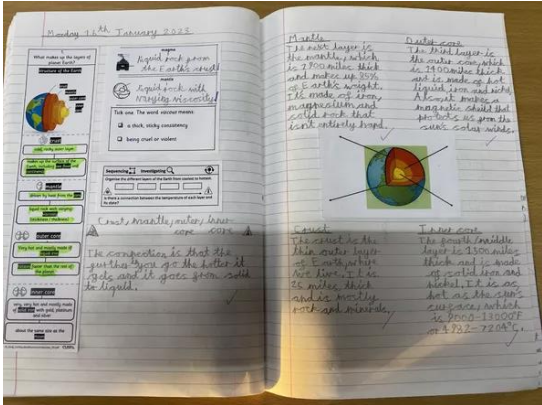 Monday 16th January 2023
What makes up the layers of
planet Earth?
Structure of the Earth
crust
solid, rocky outer layer
mantle
driven by heat from the core
liquid rock with varying
viscosity (thickness / stickiness)
outer core
Very hot and mostly made of
inner core
very, very hot and mostly made
of with gold, platinum
and silver
about the same size as the
magma
liquid rock from
the Earth's crust
mantle
liquid rock with
varying viscosity
Tick one. The word viscous means
a thick, sticky consistency
being cruel or violent
Sequencing Investigating
Organise the different layers of the Earth from coolest to hottest.
Is there a connection between the temperature of each layer and
its state?
Crust, mantle, outer, inner
core core
The connection is that the
further you go the hotter it
gets and it goes from solid
to liquid.
Mantle
The next layer is
the mantle, which
is 2900 miles thick
and makes up 85%
of Earth's weight.
It's made of iron,
magnesium and
solid rock that
isn't entirely hard.
Outer core
The third layer is
the outer core, which
is 1400 miles thick
and is made of hot
liquid, iron and nickel.
Also, it makes a
magnetic shield that
protects us from the
sun's solar winds.
Crust
The crust is the
thin outer layer
of Earth, where
we live. It is
25 miles thick
and is mostly
rock and minerals.
Inner core
The fourth/middle
layer is 1,300 miles
thick and is made
of solid iron and
nickel. It is as
hot as the sun's
surface, which
is 9000-13000°F
or 4982-7204°C.